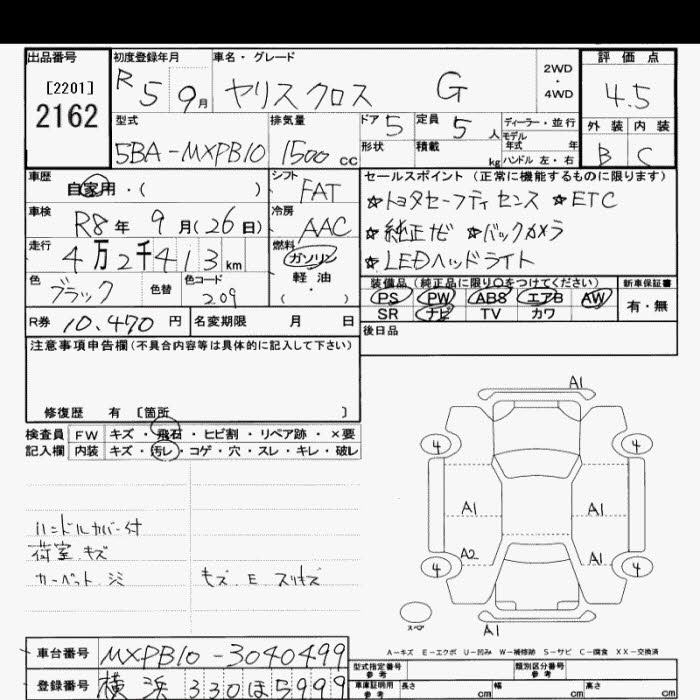 出品番号 初度登録年月 車名・グレード 2WD・4WD 評価点
[2201]
2162
R5 9月 ヤリスクロス G 4.5
外装 内装
B C
型式 排気量 ドア 5 定員 5人 ディーラー・並行
モデル年式 年
5BA-MXPB10 1500cc 形状 積載 kg ハンドル 左・右
車歴 シフト セールスポイント (正常に機能するものに限ります)
自家用・( ) FAT
☆トヨタセーフティセンス ☆ETC
車検 冷房
R8年 9月(26日) AAC
☆純正ナビ ☆バックカメラ
走行 燃料
4万2千413km ガソリン
軽・油
( )
☆LEDヘッドライト
色 色替 色コード
ブラック 209
装備品 (純正品に限り○をつけてください) 新車保証書
PS PW ABS エアB AW 有・無
SR ナビ TV カワ
R券 10,470円 名変期限 月 日
後日品
注意事項申告欄(不具合内容等は具体的に記入して下さい)
修復歴 有 [箇所 ]
検査員 FW キズ・飛石・ヒビ割・リペア跡・×要
記入欄 内装 キズ・汚レ・コゲ・穴・スレ・キレ・破レ
A1
4 4
A1 A1
A2 A1
4 4
A1
スペア
ハンドルカバー付
荷室 キズ
カーペット シミ
キズ E スリキズ
A-キズ E-エクボ U-凹み W-補修跡 S-サビ C-腐食 XX-交換済
車台番号 MXPB10-3040499
登録番号 横浜 330 ほ 5999
型式指定番号 参考 類別区分番号 参考
車庫証明用 参考 長さ cm 幅 cm 高さ cm